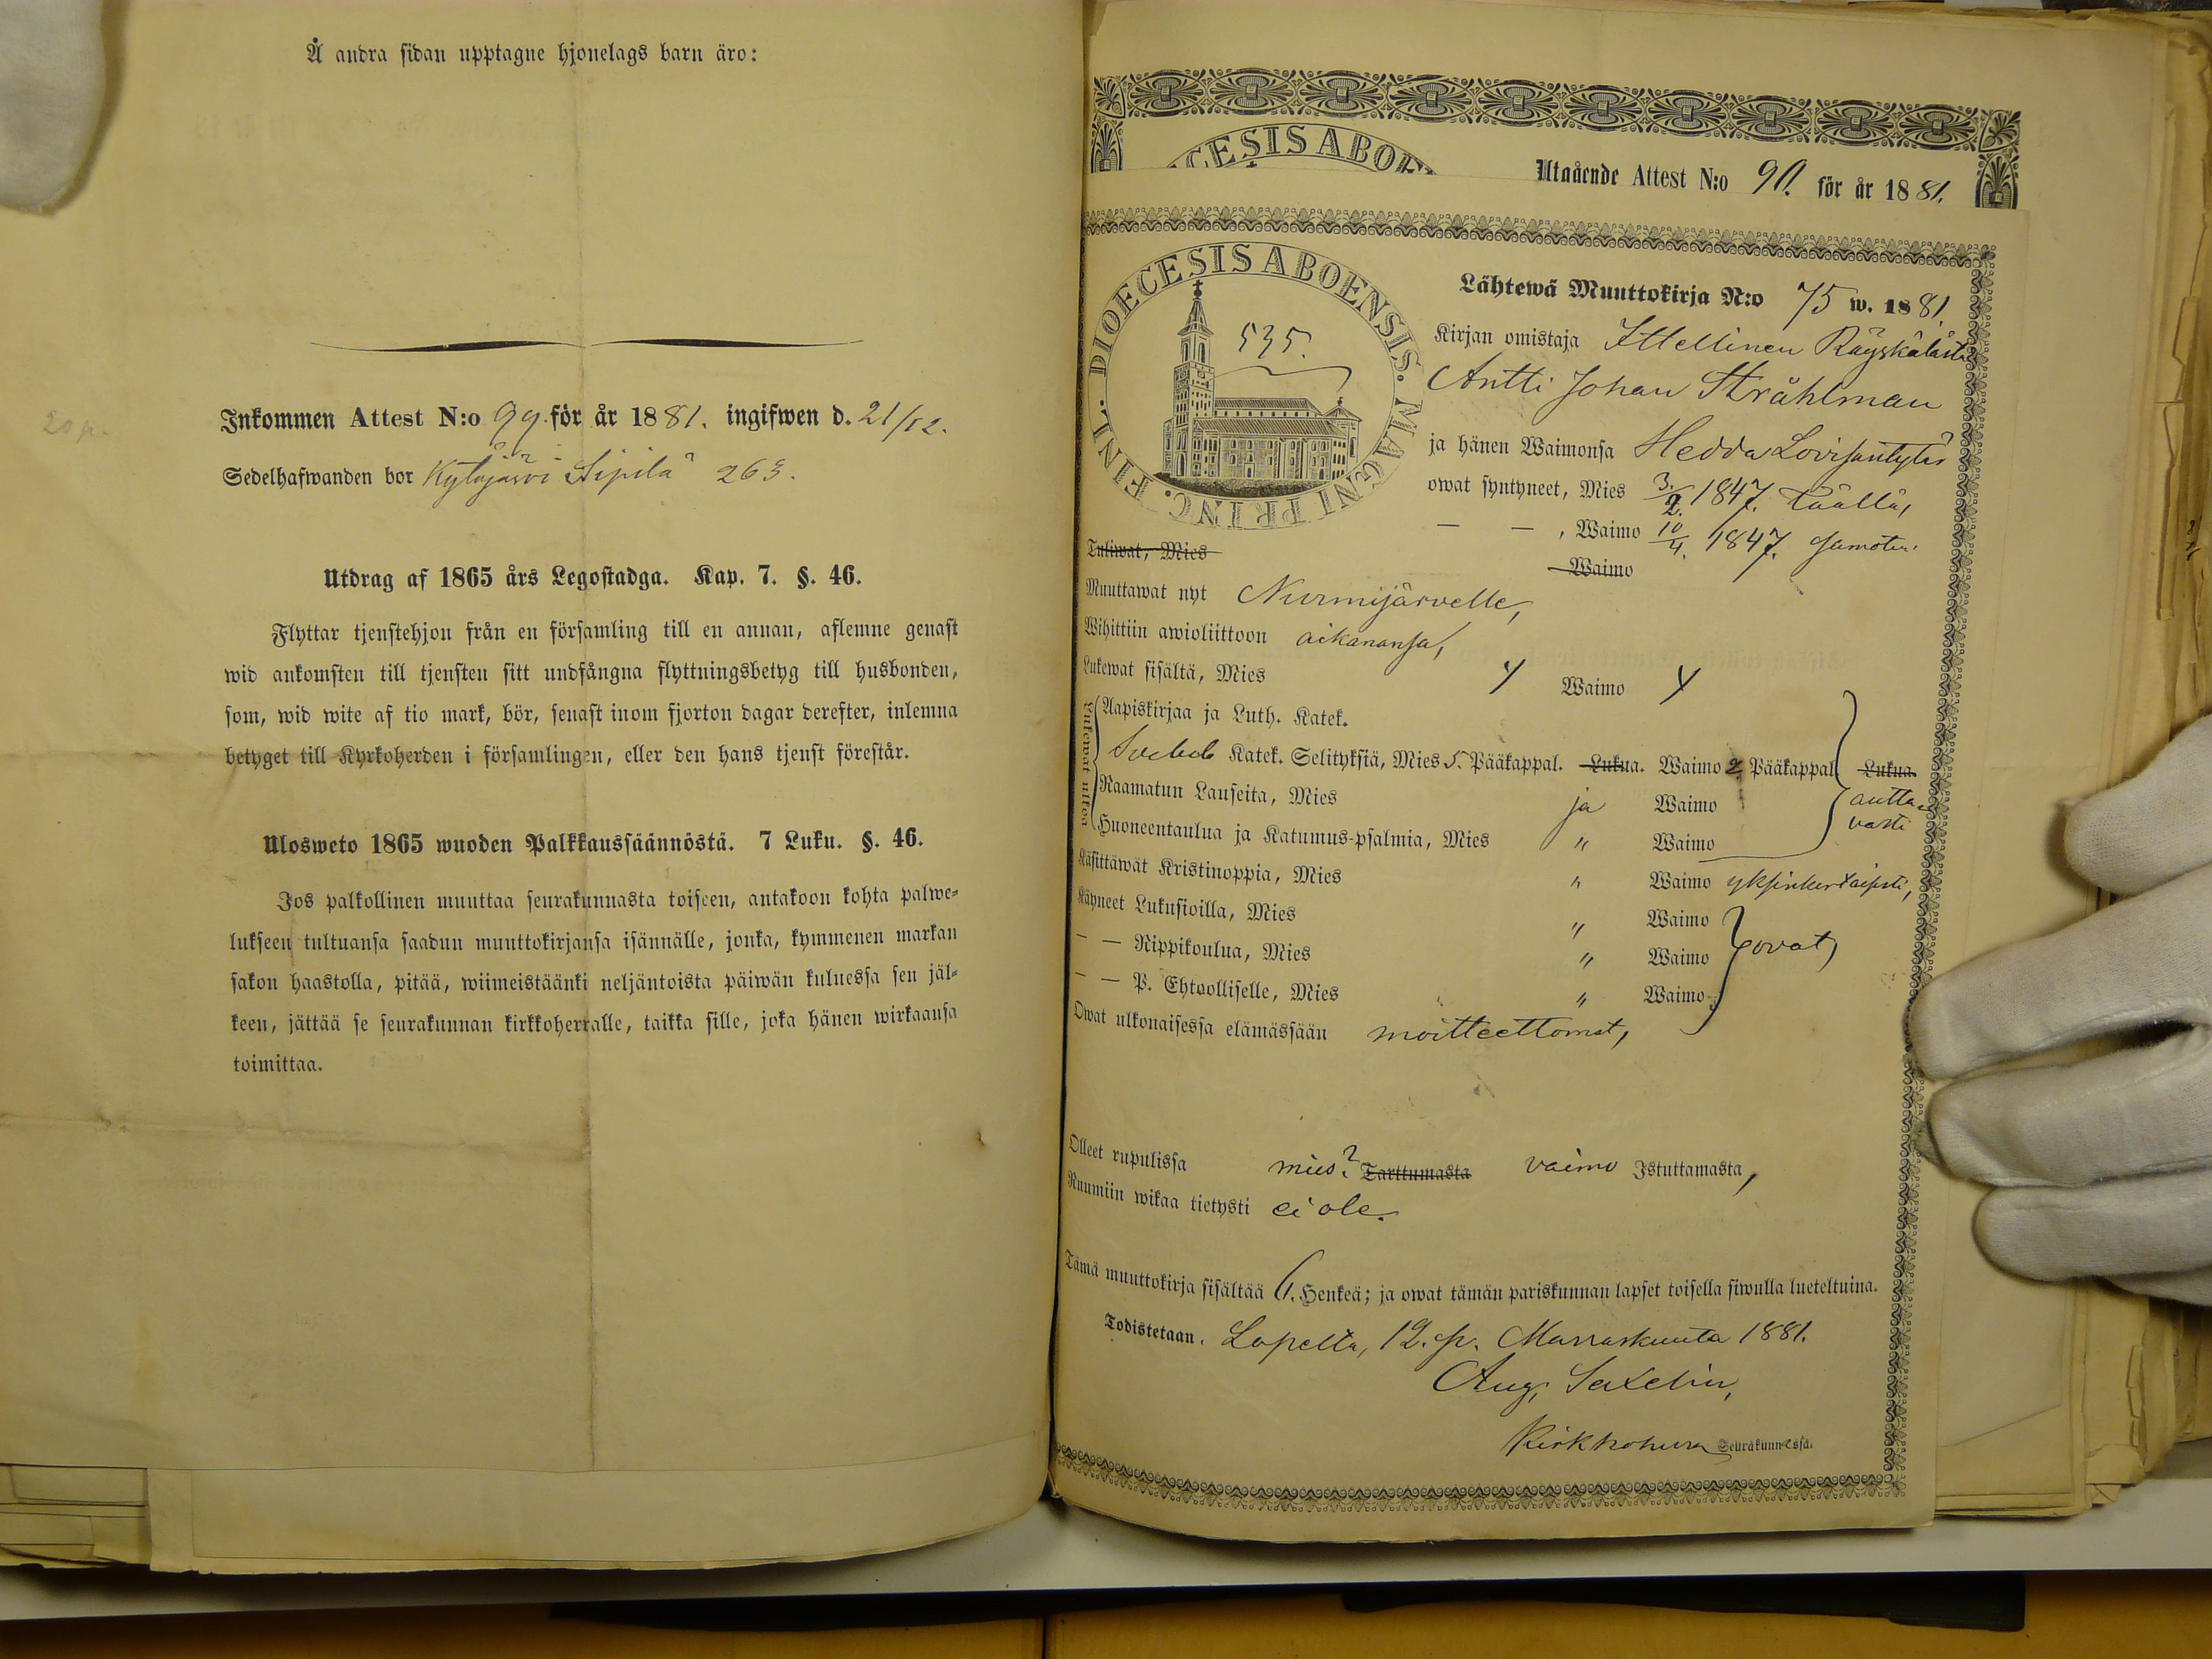 Å andra sidan upptagne hjonelags barn äro:
20 p.
Inkommen Attest N:o 99. för år 1881. ingifwen d. 21/12.
Sedelhafwanden bor Kytäjärvi Sipilä 263.
Utdrag af 1865 års Legostadga. Kap. 7. §. 46.
Flyttar tjenstehjon från en församling till en annan, aflemne genast
wid ankomsten till tjensten sitt undfångna flyttningsbetyg till husbonden,
som, wid wite af tio mark, bör, senast inom fjorton dagar derefter, inlemna
betyget till Kyrkoherden i församlingen, eller den hans tjenst förestår.
Ulosweto 1865 wuoden Palkkaussäännöstä. 7 Luku. §. 46.
Jos palkollinen muuttaa seurakunnasta toiseen, antakoon kohta palwe-
lukseen tultuansa saadun muuttokirjansa isännälle, jonka, kymmenen markan
sakon haastolla, pitää, wiimeistäänki neljäntoista päiwän kuluessa sen jäl-
keen, jättää se seurakunnan kirkkoherralle, taikka sille, joka hänen wirkaansa
toimittaa.
CESIS ABOE
Utgående Attest N:o 90. för år 1881.
DIOECESIS ABOENSIS. MAGNI PRINC. FINL.
535.
Lähtewä Muuttokirja N:o 75 w. 1881
Kirjan omistaja Ittellinen Räyskälästä
Antti Johan Stråhlman
ja hänen Waimonsa Hedda Lovisantytär
owat syntyneet, Mies 3/2. 1847. täällä,
— — , Waimo 10/4. 1847. samoten.
Tuliwat, Mies
Waimo
Muuttawat nyt Nurmijärvelle,
Wihittiin awioliittoon aikanansa,
Lukewat sisältä, Mies y Waimo y
Lukewat ulkoa
Aapiskirjaa ja Luth. Katek.
Svebel. Katek. Selityksiä, Mies 5. Pääkappal. Lukua. Waimo 2 Pääkappal. Lukua.
Raamatun Lauseita, Mies ja Waimo autta-
vasti
Huoneentaulua ja Katumus-psalmia, Mies " Waimo
Käsittäwät Kristinoppia, Mies " Waimo yksinkertaisesti,
Käyneet Lukusioilla, Mies " Waimo
— — Rippikoulua, Mies " Waimo ovat,
— — P. Ehtoolliselle, Mies " Waimo
Owat ulkonaisessa elämässään moitteettomat,
Olleet rupulissa mies? Tarttumasta vaimo Istuttamasta,
Ruumiin wikaa tietysti ei ole.
Tämä muuttokirja sisältää 6. Henkeä; ja owat tämän pariskunnan lapset toisella siwulla lueteltuina.
Todistetaan. Lopella, 12. p. Marraskuuta 1881.
Aug. Saxelin,
Kirkkoherra Seurakunnassa.